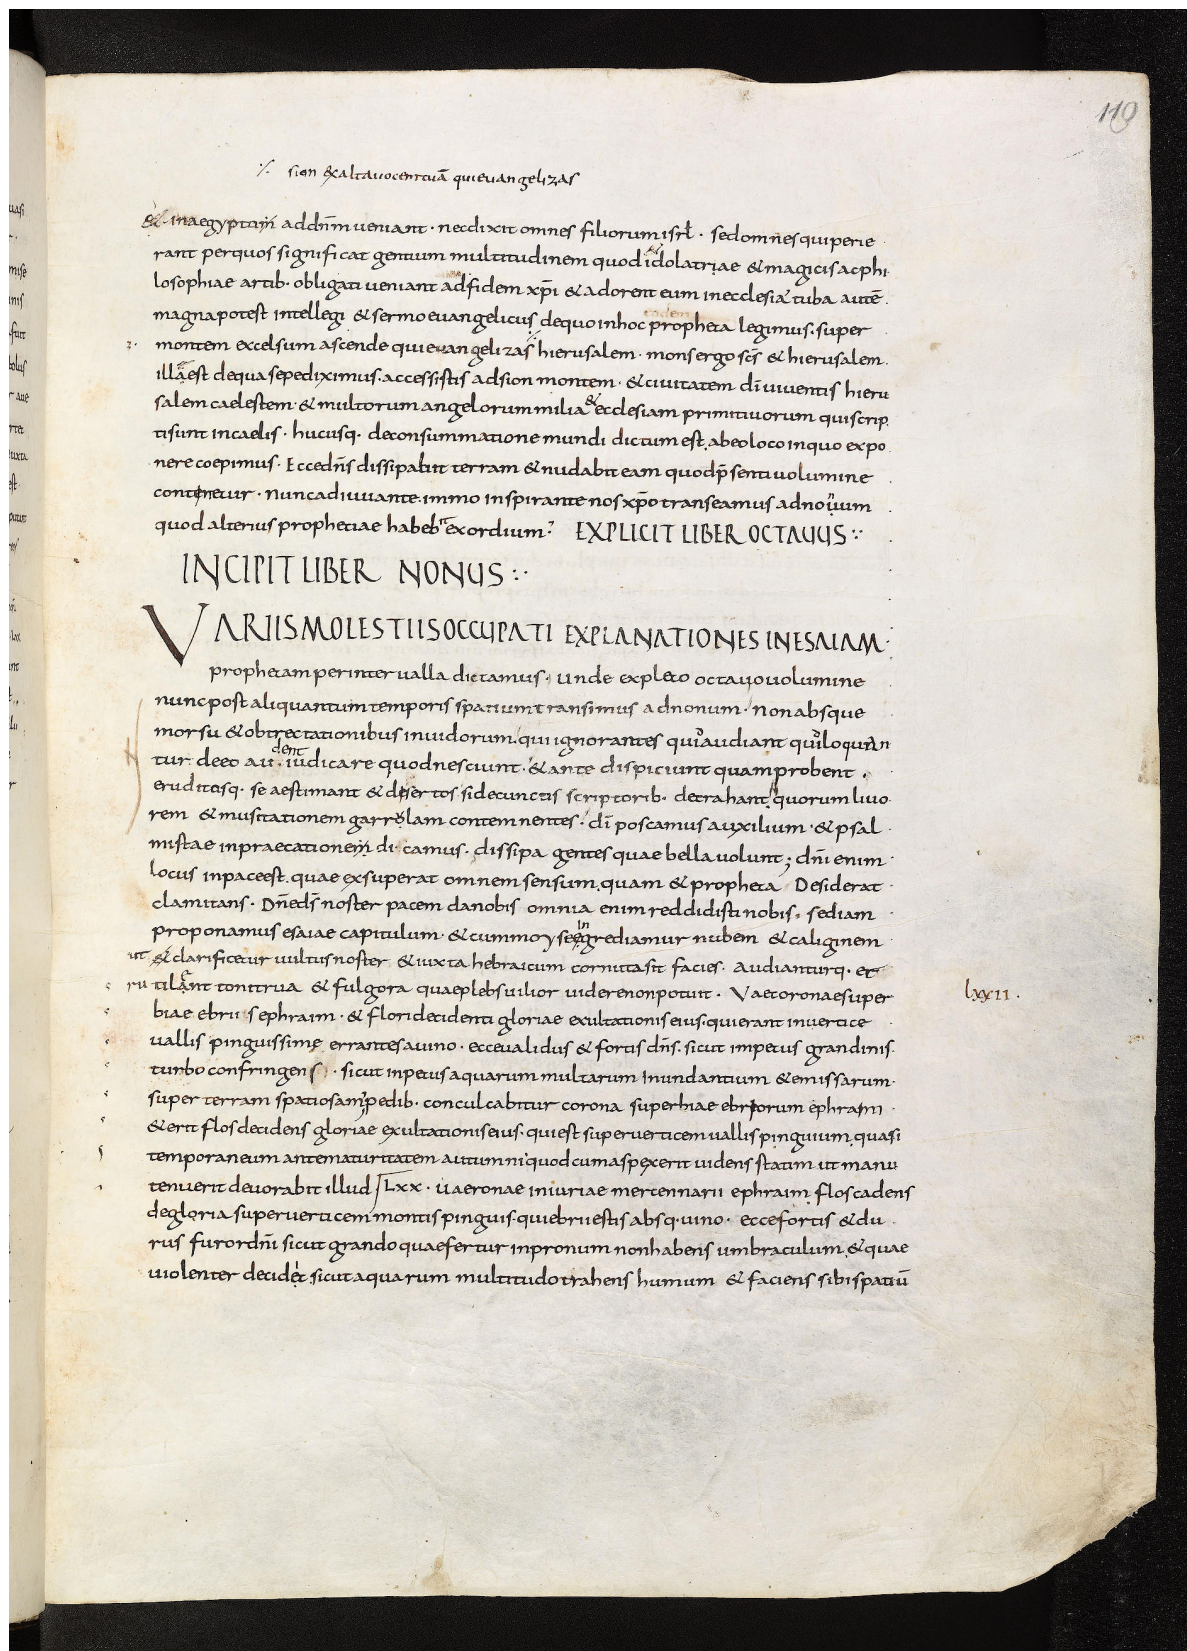 119
⁒ sion exalta vocem tuā qui evangelizas
& in aegyptum ad dn̄m veniant · nec dixit omnes filiorum isrl̄ · sed omnes qui perie
rant per quos significat gentium multitudinem quod idolatriae & magicis ac phi
losophiae artib· obligati veniant ad fidem xp̄i & adorent eum in ecclesia tuba autē
magna potest intellegi & sermo euangelicus de quo in hoc propheta legimus · super
montem excelsum ascende qui evangelizas hierusalem · mons ergo sc̄s & hierusalem
illa est de qua sepe diximus · accessistis ad sion montem · & civitatem dī viventis hieru
salem caelestem · & multorum angelorum milia & ecclesiam primitivorum qui scrip
ti sunt in caelis · hucusq· de consummatione mundi dictum est ab eo loco in quo expo
nere coepimus · Ecce dn̄s dissipabit terram & nudabit eam quod p̄senti volumine
continetur · nunc adiuvante immo inspirante nos xp̄o transeamus ad novum
quod alterius prophetiae habebit exordium? EXPLICIT LIBER OCTAUUS
INCIPIT LIBER NONUS
VARIIS MOLESTIIS OCCUPATI EXPLANATIONES IN ESAIAM
prophetam per intervalla dictamus · unde expleto octavo volumine
nunc post aliquantum temporis spatium transimus ad nonum · non absque
morsu & obtrectationibus invidorum qui ignorantes quid audiant quid loquan
tur de eo audent iudicare quod nesciunt · & ante dispiciunt quam probent ·
eruditosq· se aestimant & disertos si de cunctis scriptorib· detrahant quorum livo
rem & musitationem garrolam contemnentes · dī poscamus auxilium · & psal
mistae in praecationem dicamus · dissipa gentes quae bella volunt ; dn̄i enim
locus in pace est quae exsuperat omnem sensum quam & propheta Desiderat
clamitans · Dn̄e ds̄ noster pacem da nobis omnia enim reddidisti nobis · sed iam
proponamus esaiae capitulum · & cum moyse ingrediamur nubem & caliginem
ut & clarificetur vultus noster & iuxta hebraicum cornuta sit facies · Audianturq· et
ru tilant tonitrua & fulgora quae plebs vilior videre non potuit · Vae coronae super lxxii ·
biae ebriis ephraim · & flori decidenti gloriae exultationis eius · qui erant in vertice
vallis pinguissime errantes a vino · ecce validus & fortis dn̄s · sicut impetus grandinis
turbo confringens · sicut inpetus aquarum multarum Inundantium & emissarum
super terram spatiosam pedib· conculcabitur corona superbiae ebriorum ephraim
& erit flos decidens gloriae exultationis eius · qui est super verticem vallis pinguium quasi
temporaneum ante maturitatem autumni quod cum aspexerit videns statim ut manu
tenuerit devorabit illud Lxx · vae coronae iniuriae mercennarii ephraim flos cadens
de gloria super verticem montis pinguis · qui ebrii estis absq· vino · ecce fortis & du
rus furor dn̄i sicut grando quae fertur in pronum non habens umbraculum & quae
violenter decidet sicut aquarum multitudo trahens humum & faciens sibi spatiū